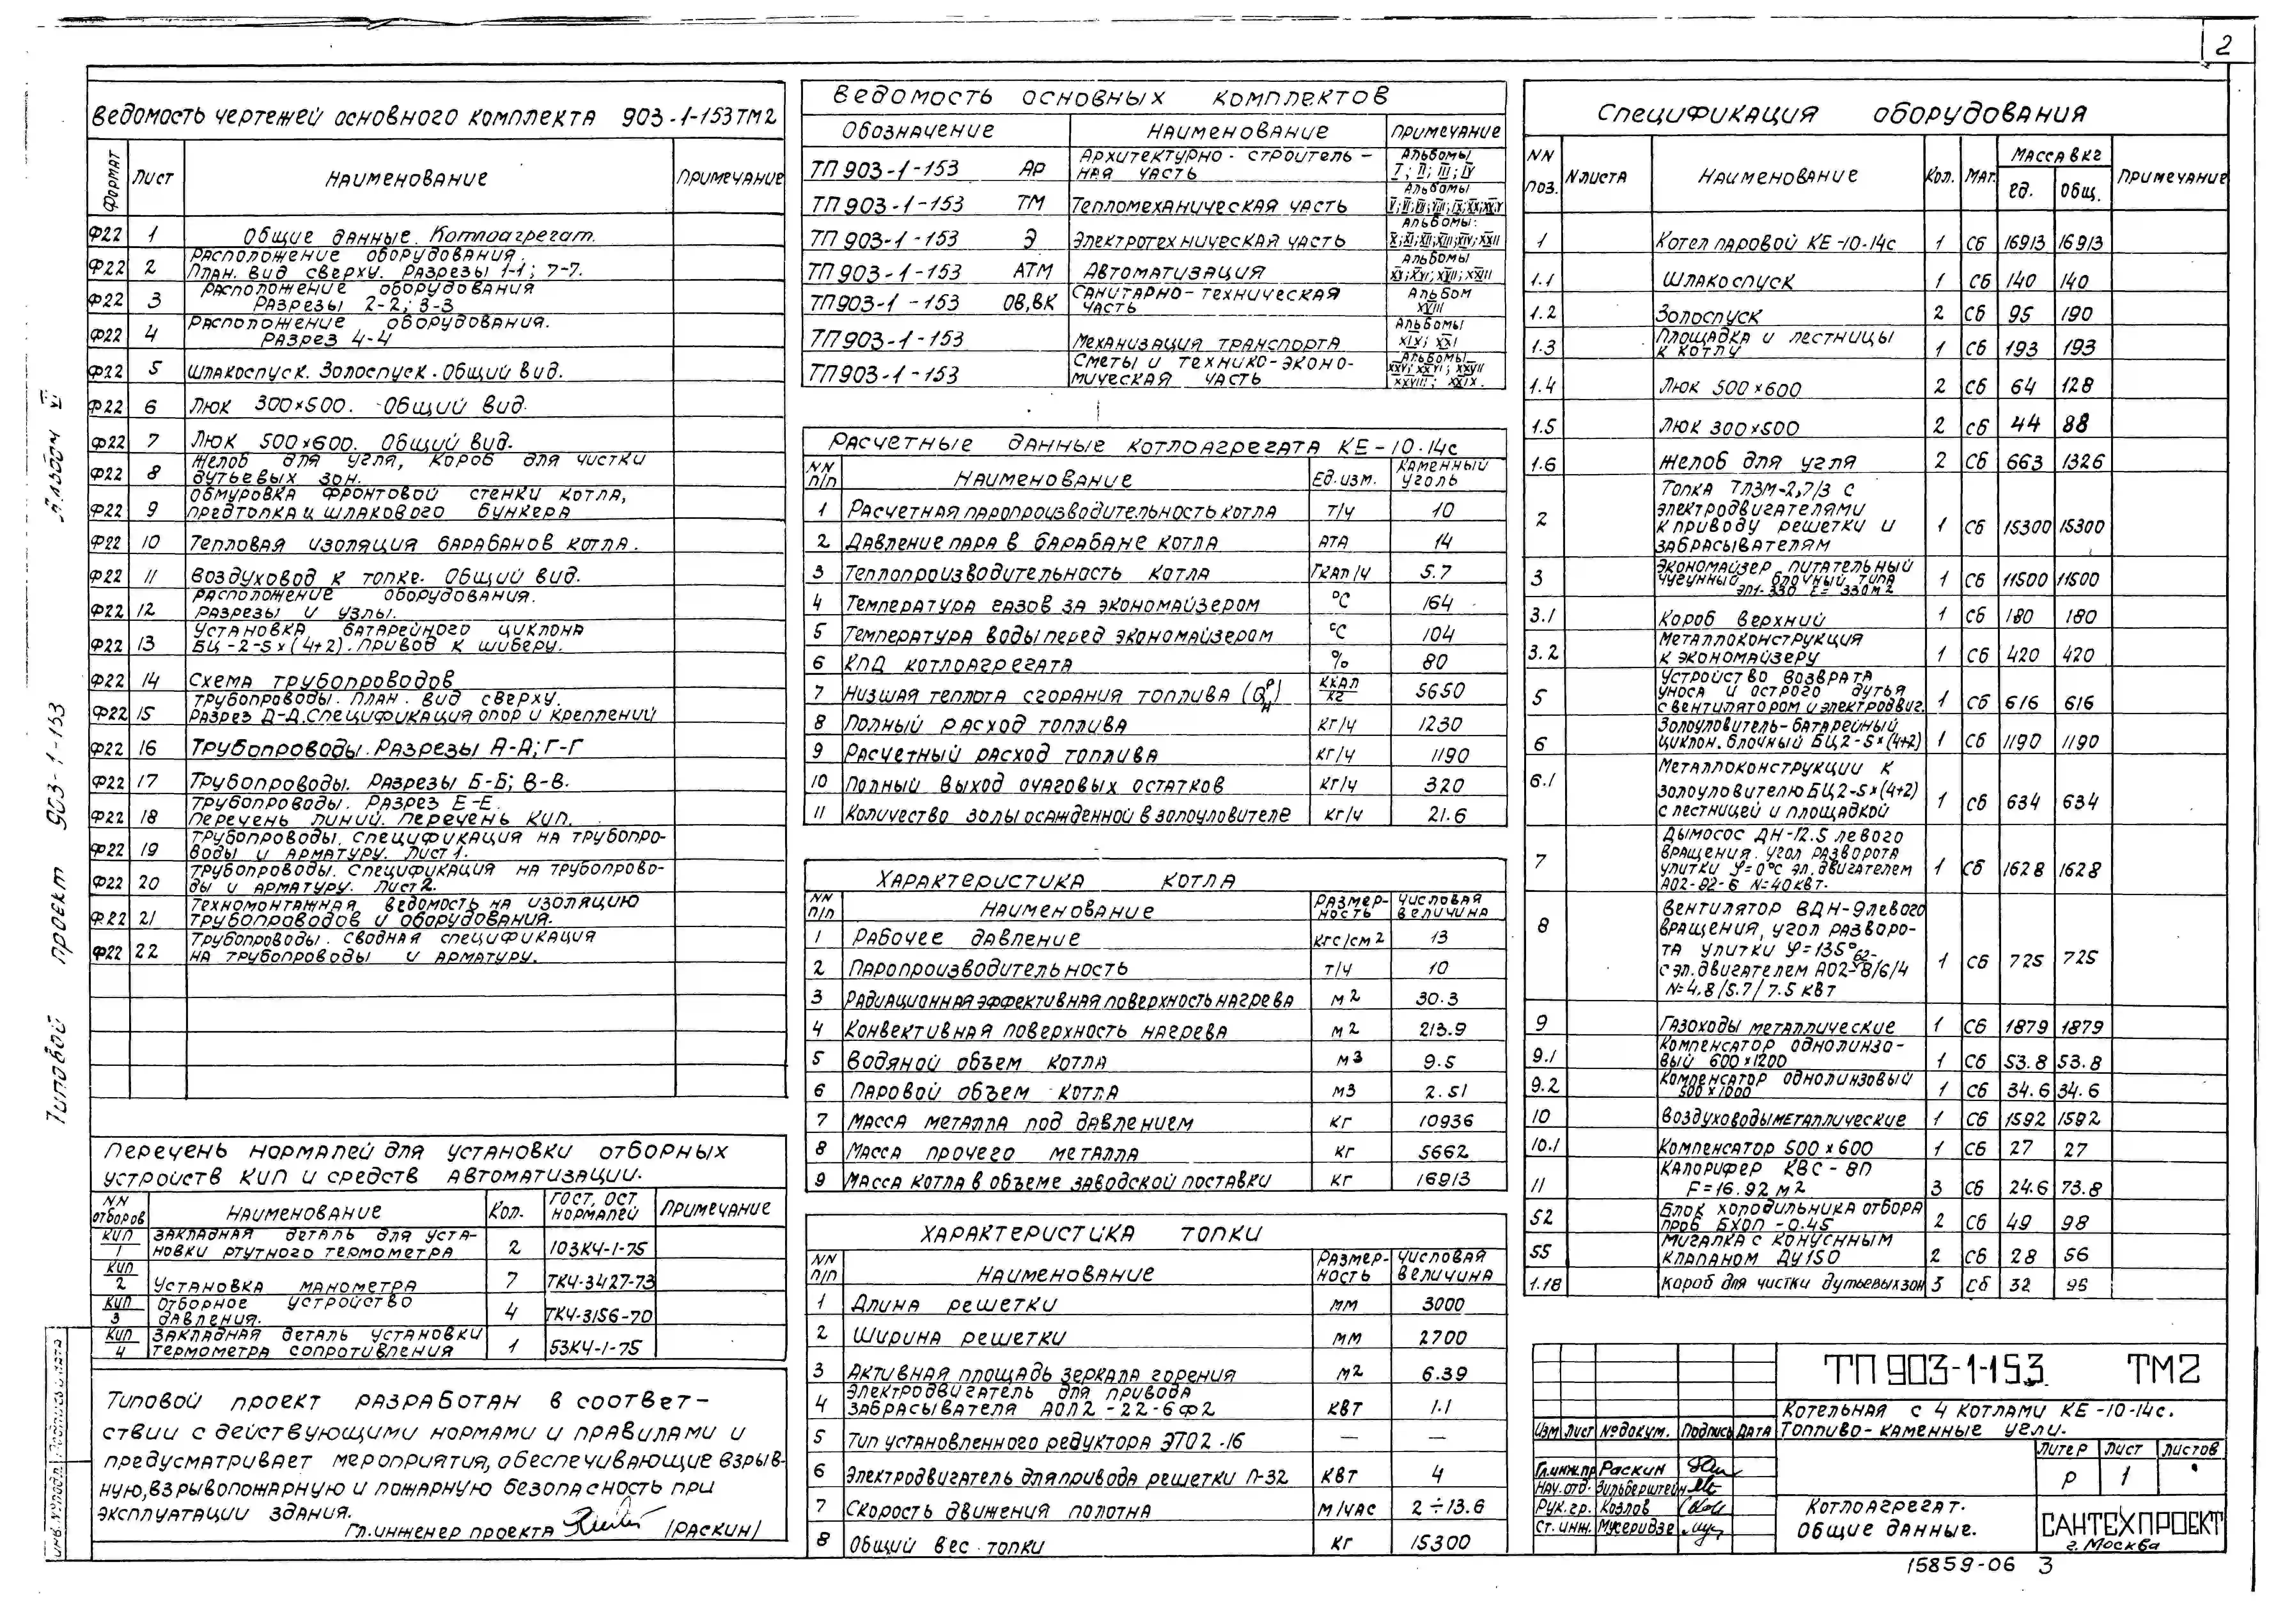 2
Ведомость чертежей основного комплекта 903-1-153ТМ2
Формат Лист Наименование Примечание
Ф22 1 Общие данные. Котлоагрегат.
Ф22 2 Расположение оборудования.
План. Вид сверху. Разрезы 1-1; 7-7.
Ф22 3 Расположение оборудования
Разрезы 2-2; 3-3
Ф22 4 Расположение оборудования.
Разрез 4-4
Ф22 5 Шлакоспуск. Золоспуск. Общий вид.
Ф22 6 Люк 300×500. Общий вид.
Ф22 7 Люк 500×600. Общий вид.
Ф22 8 Желоб для угля, короб для чистки
дутьевых зон.
Ф22 9 Обмуровка фронтовой стенки котла,
предтопка и шлакового бункера
Ф22 10 Тепловая изоляция барабанов котла.
Ф22 11 Воздуховод к топке. Общий вид.
Ф22 12 Расположение оборудования.
Разрезы и узлы.
Ф22 13 Установка батарейного циклона
БЦ-2-5×(4+2). Привод к шиберу.
Ф22 14 Схема трубопроводов
Ф22 15 Трубопроводы. План. Вид сверху.
Разрез Д-Д. Спецификация опор и креплений
Ф22 16 Трубопроводы. Разрезы А-А; Г-Г
Ф22 17 Трубопроводы. Разрезы Б-Б; В-В.
Ф22 18 Трубопроводы. Разрез Е-Е.
Перечень линий. Перечень КИП.
Ф22 19 Трубопроводы. Спецификация на трубопро-
воды и арматуру. Лист 1.
Ф22 20 Трубопроводы. Спецификация на трубопрово-
ды и арматуру. Лист 2.
Ф22 21 Техномонтажная ведомость на изоляцию
трубопроводов и оборудования.
Ф22 22 Трубопроводы. Сводная спецификация
на трубопроводы и арматуру.
Перечень нормалей для установки отборных
устройств КИП и средств автоматизации.
NN отборов Наименование Кол. ГОСТ, ОСТ нормалей Примечание
КИП 1 Закладная деталь для уста-
новки ртутного термометра 2 103КЧ-1-75
КИП 2 Установка манометра 7 ТКЧ-3427-73
КИП 3 Отборное устройство
давления. 4 ТКЧ-3156-70
КИП 4 Закладная деталь установки
термометра сопротивления 1 53КЧ-1-75
Типовой проект разработан в соответ-
ствии с действующими нормами и правилами и
предусматривает мероприятия, обеспечивающие взрыв-
ную, взрывопожарную и пожарную безопасность при
эксплуатации здания.
Гл. инженер проекта /Раскин/
Ведомость основных комплектов
Обозначение Наименование Примечание
ТП 903-1-153 АР Архитектурно-строитель-
ная часть Альбомы I; II; III; IV
ТП 903-1-153 ТМ Тепломеханическая часть Альбомы
ТП 903-1-153 Э Электротехническая часть Альбомы:
ТП 903-1-153 АТМ Автоматизация Альбомы
ТП903-1-153 ОВ,ВК Санитарно-техническая
часть Альбом XVIII
ТП903-1-153 Механизация транспорта Альбомы XIX; XXI
ТП903-1-153 Сметы и технико-эконо-
мическая часть Альбомы
Расчетные данные котлоагрегата КЕ-10-14с
NN п/п Наименование Ед. изм. Каменный уголь
1 Расчетная паропроизводительность котла т/ч 10
2 Давление пара в барабане котла ата 14
3 Теплопроизводительность котла Гкал/ч 5.7
4 Температура газов за экономайзером °С 164
5 Температура воды перед экономайзером °С 104
6 КПД котлоагрегата % 80
7 Низшая теплота сгорания топлива (Qрн) ккал/кг 5650
8 Полный расход топлива кг/ч 1230
9 Расчетный расход топлива кг/ч 1190
10 Полный выход очаговых остатков кг/ч 320
11 Количество золы осажденной в золоуловителе кг/ч 21.6
Характеристика котла
NN п/п Наименование Размерность Числовая величина
1 Рабочее давление кгс/см2 13
2 Паропроизводительность т/ч 10
3 Радиационная эффективная поверхность нагрева м2 30.3
4 Конвективная поверхность нагрева м2 213.9
5 Водяной объем котла м3 9.5
6 Паровой объем котла м3 2.51
7 Масса металла под давлением кг 10936
8 Масса прочего металла кг 5662
9 Масса котла в объеме заводской поставки кг 16913
Характеристика топки
NN п/п Наименование Размерность Числовая величина
1 Длина решетки мм 3000
2 Ширина решетки мм 2700
3 Активная площадь зеркала горения м2 6.39
4 Электродвигатель для привода
забрасывателя АОЛ2-22-6ф2 кВт 1.1
5 Тип установленного редуктора ЭТО2-16 — —
6 Электродвигатель для привода решетки П-32 кВт 4
7 Скорость движения полотна м/час 2÷13.6
8 Общий вес топки кг 15300
Спецификация оборудования
NN поз. N листа Наименование Кол. Мат. Масса в кг ед. Общ. Примечание
1 Котел паровой КЕ-10-14с 1 Сб 16913 16913
1.1 Шлакоспуск 1 Сб 140 140
1.2 Золоспуск 2 Сб 95 190
1.3 Площадка и лестницы
к котлу 1 Сб 193 193
1.4 Люк 500×600 2 Сб 64 128
1.5 Люк 300×500 2 Сб 44 88
1.6 Желоб для угля 2 Сб 663 1326
2 Топка ТЛЗМ-2,7/3 с
электродвигателями
к приводу решетки и
забрасывателям 1 Сб 15300 15300
3 Экономайзер питательный
чугунный блочный типа
ЭП1-330 F=330м2 1 Сб 11500 11500
3.1 Короб верхний 1 Сб 180 180
3.2 Металлоконструкция
к экономайзеру 1 Сб 420 420
5 Устройство возврата
уноса и острого дутья
с вентилятором и электродвиг. 1 Сб 616 616
6 Золоуловитель-батарейный
циклон. блочный БЦ2-5×(4+2) 1 Сб 1190 1190
6.1 Металлоконструкции к
золоуловителю БЦ2-5×(4+2)
с лестницей и площадкой 1 Сб 634 634
7 Дымосос ДН-12.5 левого
вращения. угол разворота
улитки φ=0°с эл. двигателем
АО2-82-6 N=40кВт. 1 Сб 1628 1628
8 Вентилятор ВДН-9левого
вращения, угол разворо-
та улитки φ=135°
с эл. двигателем АО2-62-8/6/4
N=4.8/5.7/7.5 кВт 1 Сб 725 725
9 Газоходы металлические 1 Сб 1879 1879
9.1 Компенсатор однолинзо-
вый 600×1200 1 Сб 53.8 53.8
9.2 Компенсатор однолинзовый
500×1000 1 Сб 34.6 34.6
10 Воздуховоды металлические 1 Сб 1592 1592
10.1 Компенсатор 500×600 1 Сб 27 27
11 Калорифер КВС-8П
F=16.92 м2 3 Сб 24.6 73.8
52 Блок холодильника отбора
проб БХОП-0.45 2 Сб 49 98
55 Мигалка с конусным
клапаном Ду150 2 Сб 28 56
1.18 Короб для чистки дутьевых зон 3 Сб 32 96
ТП 903-1-153 ТМ2
Котельная с 4 котлами КЕ-10-14с.
Топливо-каменные угли.
Изм Лист №докум. Подпись Дата
Гл.инж.пр Раскин
Нач.отд. Зильберштейн
Рук.гр. Козлов
Ст.инж. Мусеридзе
Литер Лист Листов
Р 1
Котлоагрегат.
Общие данные.
САНТЕХПРОЕКТ
г. Москва
15859-06 3
Типовой проект 903-1-153 Альбом VI
Инв.№подл. Подпись и дата